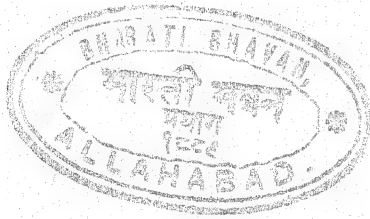 BHARATI BHAVAN,
भारती भवन
प्रयाग
ALLAHABAD.